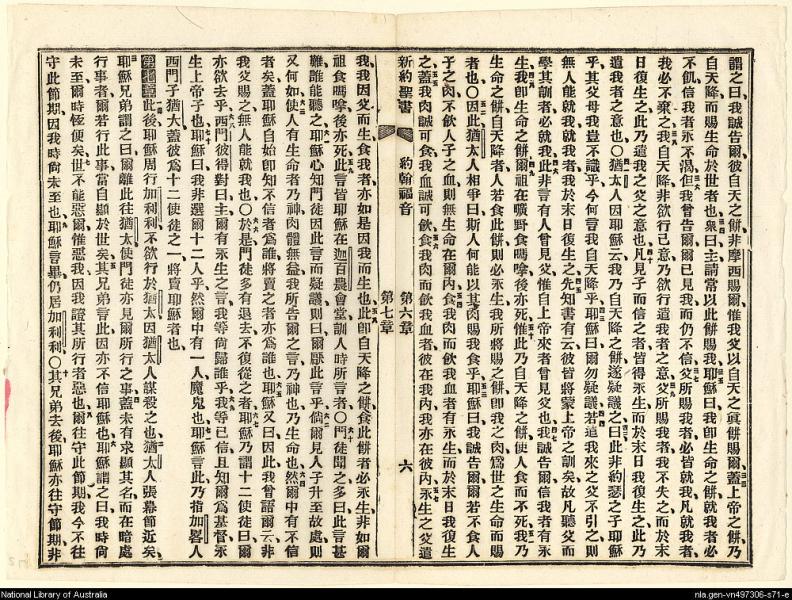 謂之曰我誠告爾彼自天之餅非摩西賜爾惟我父以自天之眞餅賜爾蓋上帝之餅乃
自天降而賜生命於世者也衆曰主請常以此餅賜我耶穌曰我卽生命之餅就我者必
不飢信我者永不渴但我曾告爾爾已見我而仍不信父所賜我者必皆就我凡就我者
我必不棄之我自天降非欲行己意乃欲行遣我者之意父所賜我者我不失之而於末
日復生之此乃遣我之父之意也凡見子而信之者皆得永生而於末日我復生之此乃
遣我者之意也〇猶太人因耶穌云我乃自天降之餅遂疑議之曰此非約瑟之子耶穌
乎其父母我豈不識乎今何言我自天降乎耶穌曰爾勿疑議若遣我來之父不引之則
無人能就我就我者我於末日復生之先知書有云彼皆將蒙上帝之訓矣故凡聽父而
學其訓者必就我此非言有人曾見父惟自上帝來者曾見父也我誠告爾信我者有永
生我卽生命之餅爾祖在曠野食嗎嗱後亦死惟此乃自天降之餅使人食而不死我乃
生命之餅自天降者人若食此餅則必永生我所將賜之餅卽我之肉爲世之生命而賜
者也〇因此猶太人相爭曰斯人何能以其肉賜我食乎耶穌曰我誠告爾爾若不食人
子之肉不飲人子之血則無生命在爾內食我肉而飲我血者有永生而於末日我復生
之蓋我肉誠可食我血誠可飲食我肉而飲我血者彼在我內我亦在彼內永生之父遣
新約聖書 約翰福音 第六章 第七章 六
我我因父而生食我者亦如是因我而生也此卽自天降之餅食此餅者必永生非如爾
祖食嗎嗱後亦死此言皆耶穌在迦百農會堂訓人時所言者〇門徒聞之多曰此言甚
難誰能聽之耶穌心知門徒因此言而疑議則曰爾厭此言乎倘爾見人子升至故處則
又何如使人有生命者乃神肉體無益我所告爾之言乃神也乃生命也然爾中有不信
者矣蓋耶穌自始卽知不信者爲誰將賣之者亦爲誰也耶穌又曰因此我曾語爾云非
我父賜之無人能就我也〇於是門徒多有退去不復從之者耶穌乃謂十二使徒曰爾
亦欲去乎西門彼得對曰主爾有永生之言我等尙歸誰乎我等已信且知爾爲基督永
生上帝子也耶穌曰我非選爾十二人乎然爾中有一人魔鬼也耶穌言此乃指加畧人
西門子猶大蓋彼爲十二使徒之一將賣耶穌者也
第七章此後耶穌周行加利利不欲行於猶太因猶太人謀殺之也猶太人張幕節近矣
耶穌兄弟謂之曰爾離此往猶太使門徒亦見爾所行之事蓋未有求顯其名而在暗處
行事者爾若行此事當自顯於世矣其兄弟言此因亦不信耶穌也耶穌謂之曰我時尙
未至爾時恆便矣世不能惡爾惟惡我因我證其所行者惡也爾往守此節期我今不往
守此節期因我時尙未至也耶穌言畢仍居加利利〇其兄弟去後耶穌亦往守節期非
National Library of Australia
nla.gen-vn497306-s71-e